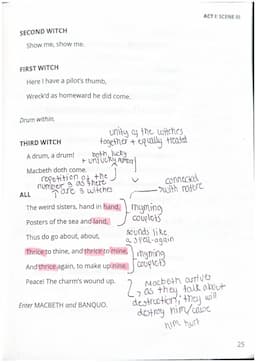 ACT I: SCENE III
SECOND WITCH
Show me, show me.
FIRST WITCH
Here I have a pilot's thumb,
Wreck'd as homeward he did come.
Drum within.
unity of the witches
together + equally treated
THIRD WITCH
A drum, a drum!
both lucky
+ unlucky number
Macbeth doth come.
repetition of the
number 3 as there
are 3 witches
connected
with nature
ALL
The weird sisters, hand in hand,
Posters of the sea and land,
rhyming
couplets
Thus do go about, about,
sounds like
a spell again
Thrice to thine, and thrice to mine,
And thrice again, to make up nine.
rhyming
couplets
Peace! The charm's wound up.
Macbeth arrives
as they talk about
destruction, they will
destroy him/cause
him hurt
Enter MACBETH and BANQUO.
25